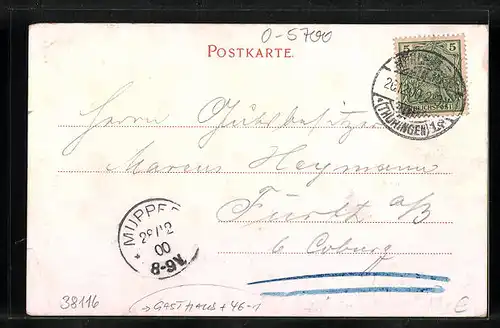 O-5700
POSTKARTE.
5 5
REICHSPOST
(THÜRINGEN)
Herrn Gutsbesitzer
Marcus Heymann
Fürth a/B
b Coburg
* MUPPE
29/12
00
8-9V.
38116
→ GASTHAUS + 46-1
€